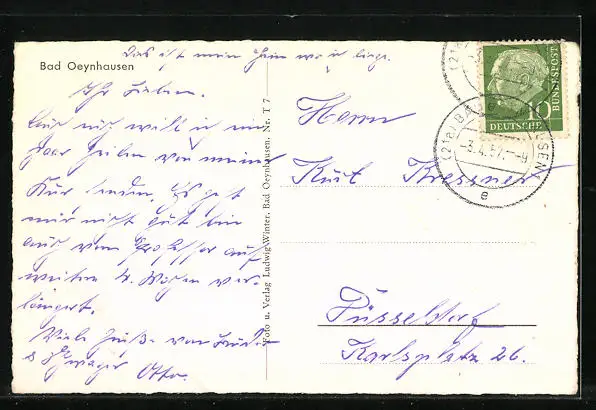 Das ist mein Heim wo ich liege.
Bad Oeynhausen
Ihr Lieben.
Auch euch will ich ein
paar Zeilen von meiner
Kur senden. Es geht
mir nicht gut bin
auch vom Professor auf
weitere 4. Wochen ver-
längert.
Viele Grüße von Bruder
& Schwager Otto.
Foto u. Verlag Ludwig Winter, Bad Oeynhausen. Nr. T 7
Herrn
Kurt Kressner
Düsseldorf
Karlsplatz 26.
10
DEUTSCHE
BUNDESPOST
(21a) BAD OEYNHAUSEN
-3.4.57.--9
e